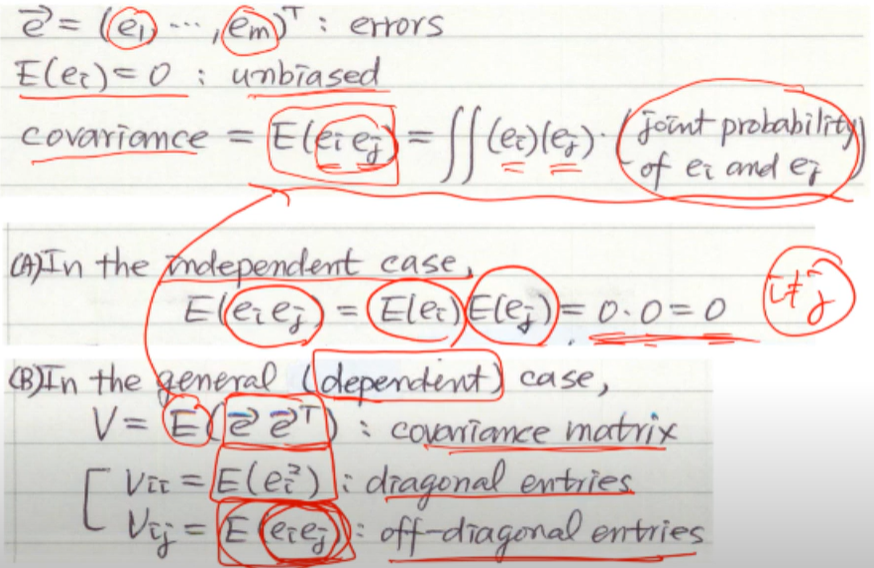 e⃗ = (e₁, ⋯, eₘ)ᵀ : errors
E(eᵢ) = 0 : unbiased
covariance = E(eᵢ eⱼ) = ∬ (eᵢ)(eⱼ) · (joint probability
of eᵢ and eⱼ)
(A) In the independent case,
E(eᵢ eⱼ) = E(eᵢ) E(eⱼ) = 0 · 0 = 0 i ≠ j
(B) In the general (dependent) case,
V = E(e⃗ e⃗ᵀ) : covariance matrix
[ Vᵢᵢ = E(eᵢ²) : diagonal entries
Vᵢⱼ = E(eᵢeⱼ) : off-diagonal entries